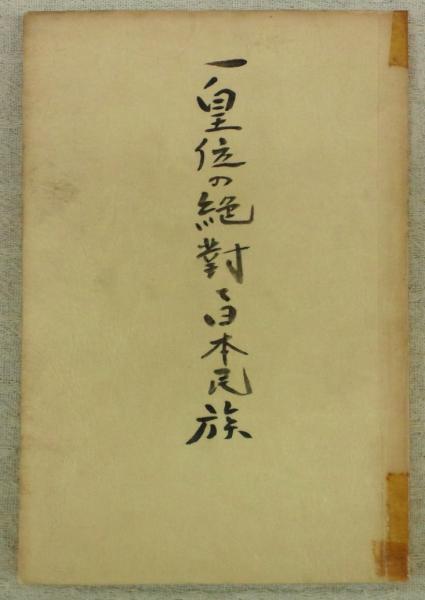 一皇位の絶對と日本民族